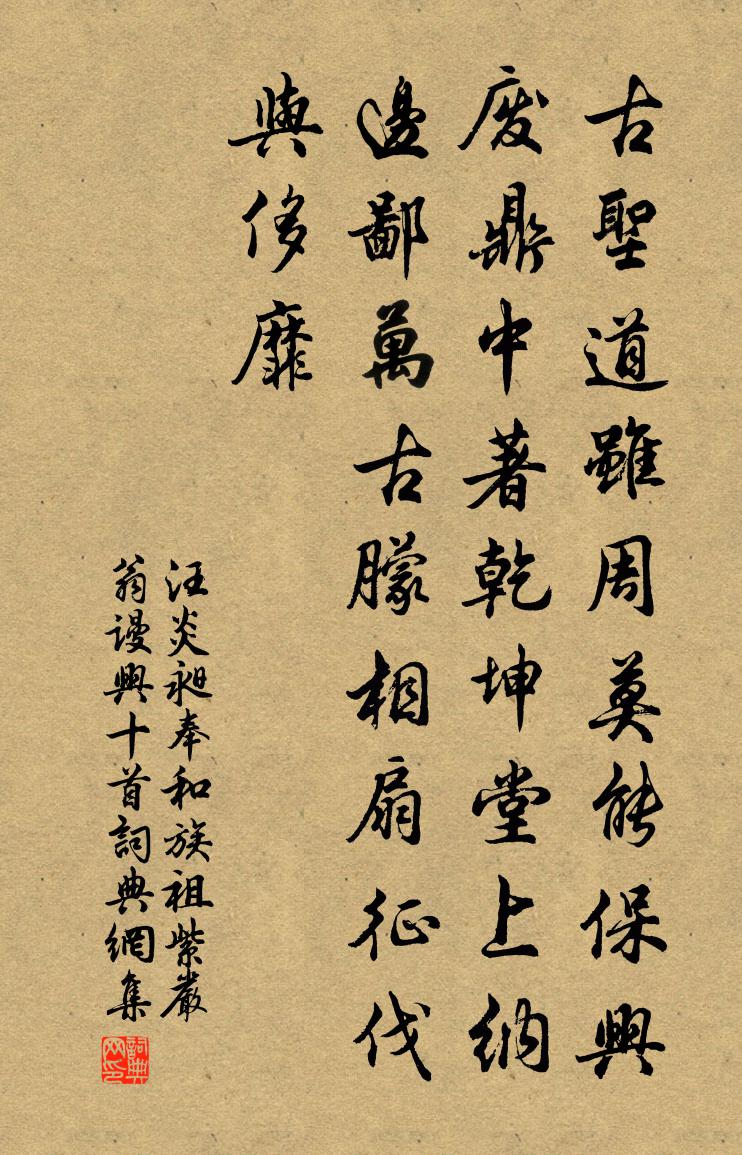 古聖道雖周莫能保興
廢鼎中著乾坤堂上納
邊鄙萬古朦相扇征伐
與侈靡
汪炎昶奉和族祖紫巖
翁謾興十首詞典網集
詞典网印